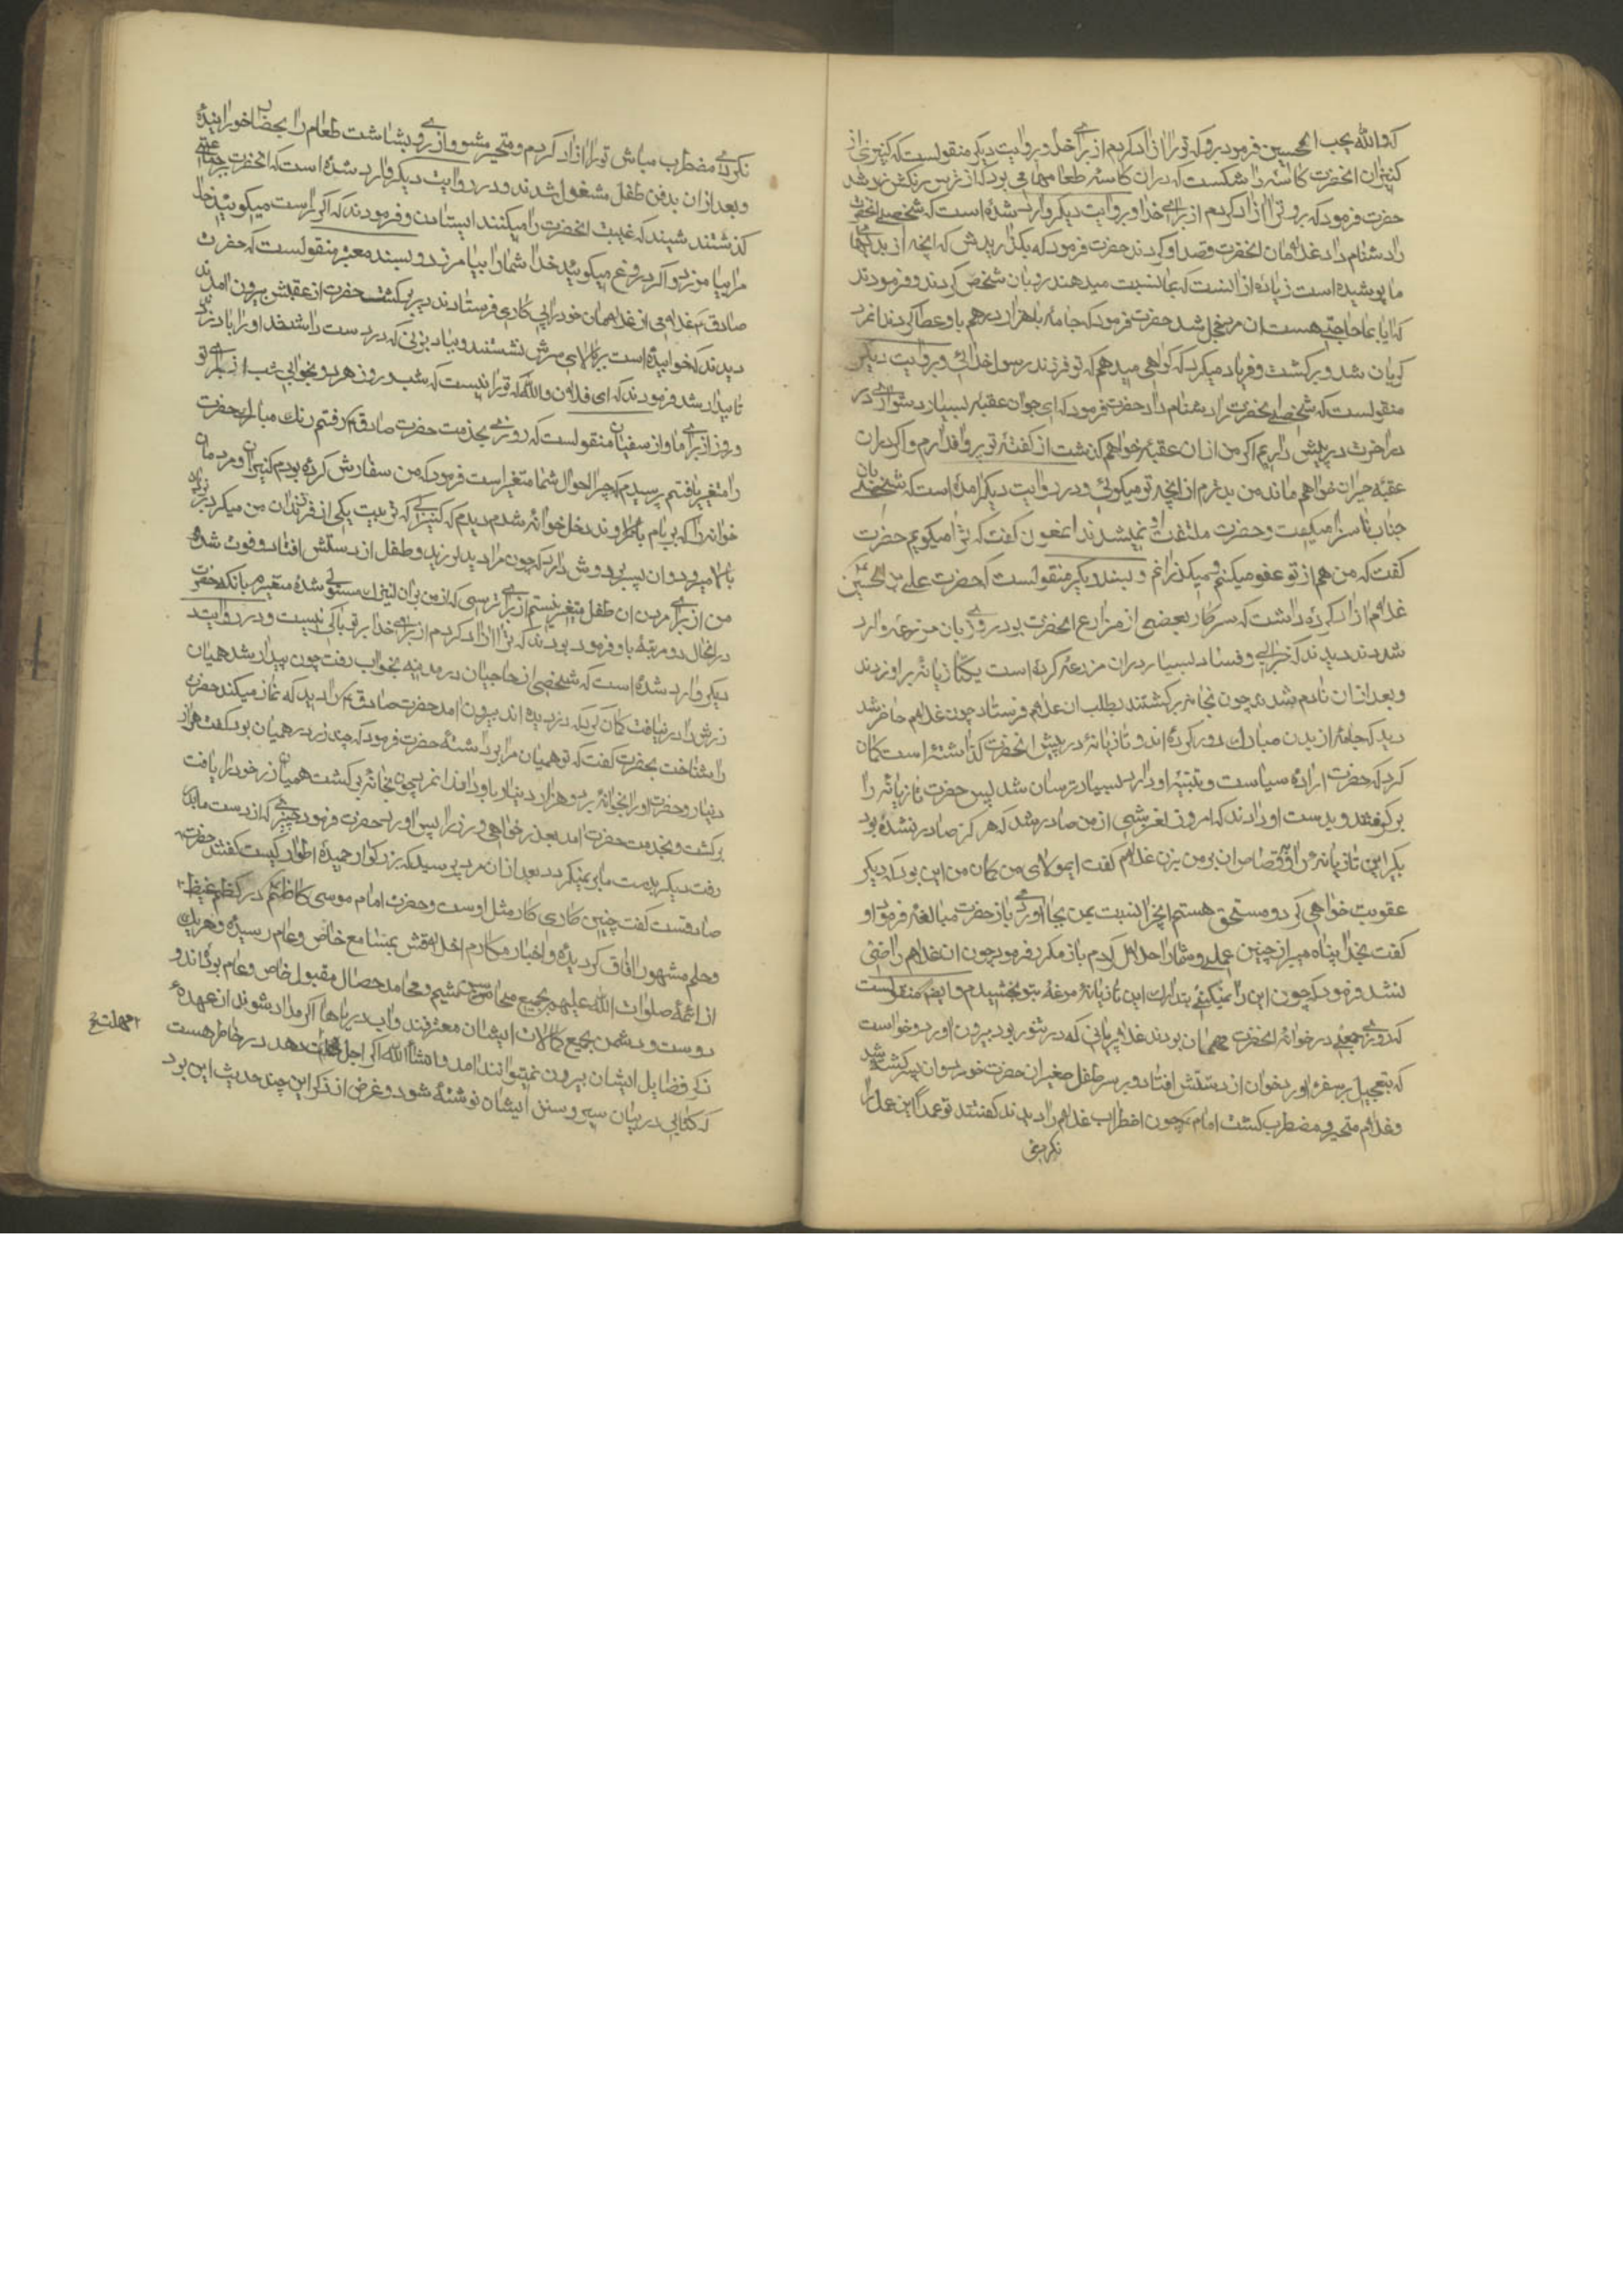 که والله یحب المحسنین فرمود برو که تو را ازاد کردم از برای خدا و بروایت دیکر منقولست که کنیزی از
کنیزان انحضرت کاسه را شکست که دران کاسه طعامی بود که از ترس رنکش زرد شد
حضرت فرمود که برو ترا ازاد کردم از برای خدا و بروایت دیکر وارد شده است که شخصی انحضرت
را دشنام داد غلامان انحضرت قصد او کردند حضرت فرمود که بکذاریدش که انچه از بدیهای
ما پوشیده است زیاده از انست که بما نسبت میدهند و بان شخص کردند و فرمودند
که ایا بما حاجتی هست ان مرد خجل شد حضرت فرمود که جامه با هزار درهم باو عطا کردند انمرد
کریان شد و برکشت و فریاد میکرد که کواهی میدهم که تو فرزند رسول خدائی و بروایت دیکر
منقولست که شخصی انحضرت را دشنام داد حضرت فرمود که ای جوان عقبه بسیار دشواری در
در اخرت در پیش داریم اکر من از ان عقبه خواهم کذشت از کفته تو پروا ندارم و اکر دران
عقبه حیران خواهم ماند من بدترم از انچه تو میکوئی و در روایت دیکر امده است که شخصی بان
جناب ناسزا میکفت و حضرت ملتفت او نمیشدند انملعون کفت که ترا میکویم حضرت
کفت که من هم از تو عفو میکنم و میکذرانم و بسند دیکر منقولست که حضرت علی بن الحسین
غلام ازاد کرده داشت که سرکار بعضی از مزارع انحضرت بود روزی بان مزرعه وارد
شدند دیدند که خرابی و فساد بسیار دران مزرعه کرده است یکتازیانه بر او زدند
و بعد ازان نادم شدند چون بخانه برکشتند بطلب ان غلام فرستاد چون غلام حاضر شد
دید که جامه از بدن مبارک دور کرده اند و تازیانه در پیش انحضرت کذاشته است کمان
کرد که حضرت اراده سیاست و تنبیه او دارد بسیار ترسان شد پس حضرت تازیانه را
برکرفتند و بدست او دادند که امروز لغزشی از من صادر شد که هرکز صادر نشده بود
بکیر این تازیانه را و قصاص ان بر من بزن غلام کفت ایمولای من کمان من این بود که دیکر
عقوبت خواهی کرد و مستحق هستم انچه را نسبت بمن بجا اوری باز حضرت مبالغه فرمود او
کفت بخدا پناه میبرم از چنین عملی و شما را حلال کردم باز مکرر فرمود چون ان غلام راضی
نشد فرمود که چون این را نمیکنی بتدارک این تازیانه مزرعه بتو بخشیدم و ایضا منقولست
که روزی جمعی در خوانه انحضرت مهمان بودند غلام بریانی که در تنور بود بیرون اورد و خواست
که بتعجیل بر سفره اورد خوان از دستش افتاد و بر سر طفل صغیر ان حضرت خورد و ان پسر کشته شد
و غلام متحیر و مضطرب کشت امام چون اضطراب غلام را دیدند کفتند تو عمدا این عمل را
نکردی
نکردی مضطرب مباش تو را ازاد کردم و متحیر مشو و از روی بشاشت طعام را بحضار خورانیده
و بعد ازان بدفن طفل مشغول شدند و در روایت دیکر وارد شده است که انحضرت بجماعتی
کذشتند شنیدند که غیبت انحضرت را میکنند ایستادند و فرمودند که اکر راست میکوئید خدا
مرا بیامرزد و اکر دروغ میکوئید خدا شما را بیامرزد و بسند معتبر منقولست که حضرت
صادق غلامی از غلامان خود را پی کاری فرستادند دیر برکشت حضرت از عقبش بیرون امدند
دیدند که خوابیده است بر بالای سرش نشستند و بباد بزنی که در دست داشتند او را باد زدند
تا بیدار شد فرمودند که ای فلان والله که ترا نیست که شب و روز هر دو بخوابی شب از برای تو
و روز از برای ما و از سفیان منقولست که روزی بخدمت حضرت صادق رفتم رنک مبارک حضرت
را متغیر یافتم پرسیدم که چرا احوال شما متغیر است فرمود که من سفارش کرده بودم کنیزان و مردمان
خوانه را که بر بام بالا نروند داخل خوانه شدم دیدم که کنیزی که تربیت یکی از فرزندان من میکرد بر نردبان
بالا میرود و ان پسر بر دوش دارد که چون مرا دید لرزید و طفل از دستش افتاد و فوت شده
من از برای مردن ان طفل متغیر نیستم از برای ترسی که از من بران کنیزک مستولی شده متغیرم بانکه حضرت
در انحال دو مرتبه باو فرمود بودند که ترا ازاد کردم از برای خدا بر تو باکی نیست و در روایت
دیکر وارد شده است که شخصی از حاجیان در مدینه بخواب رفت چون بیدار شد همیان
زرش را در نیافت کمان کرد که دزدیده اند بیرون امد حضرت صادق را دید که نماز میکند حضرت
را نشناخت بحضرت کفت که تو همیان مرا برداشته حضرت فرمود که چند زر در همیان بود کفت هزار
دینار و حضرت او را بخوانه برد و هزار دینار باو داد انمرد چون بخانه برکشت همیان زر خود را یافت
برکشت و بخدمت حضرت امد بعذر خواهی و زر را پس اورد حضرت فرمود چیزی که از دست ما بدر
رفت دیکر بدست ما بر نمیکردد بعد ازان مرد پرسید که بزرکوار حمیده اطوار کیست کفتند حضرت
صادقست کفت چنین کاری کار مثل اوست و حضرت امام موسی کاظم در کظم غیظ
و حلم مشهور افاق کردیده و اخبار مکارم اخلاقش بمسامع خاص و عام رسیده و هر یک
از ائمه صلوات الله علیهم بجمیع محاسن شیم و محامد خصال مقبول خاص و عام بوده اند و
دوست و دشمن بجمیع کمالات ایشان معترفند و اب دریاها اکر مداد شوند از عهده
ذکر فضایل ایشان بیرون نمیتوانند امد و انشاالله اکر اجل دهد در خاطر هست
که کتابی در بیان سیر و سنن ایشان نوشته شود و غرض از ذکر این چند حدیث این بود
مهلت خ